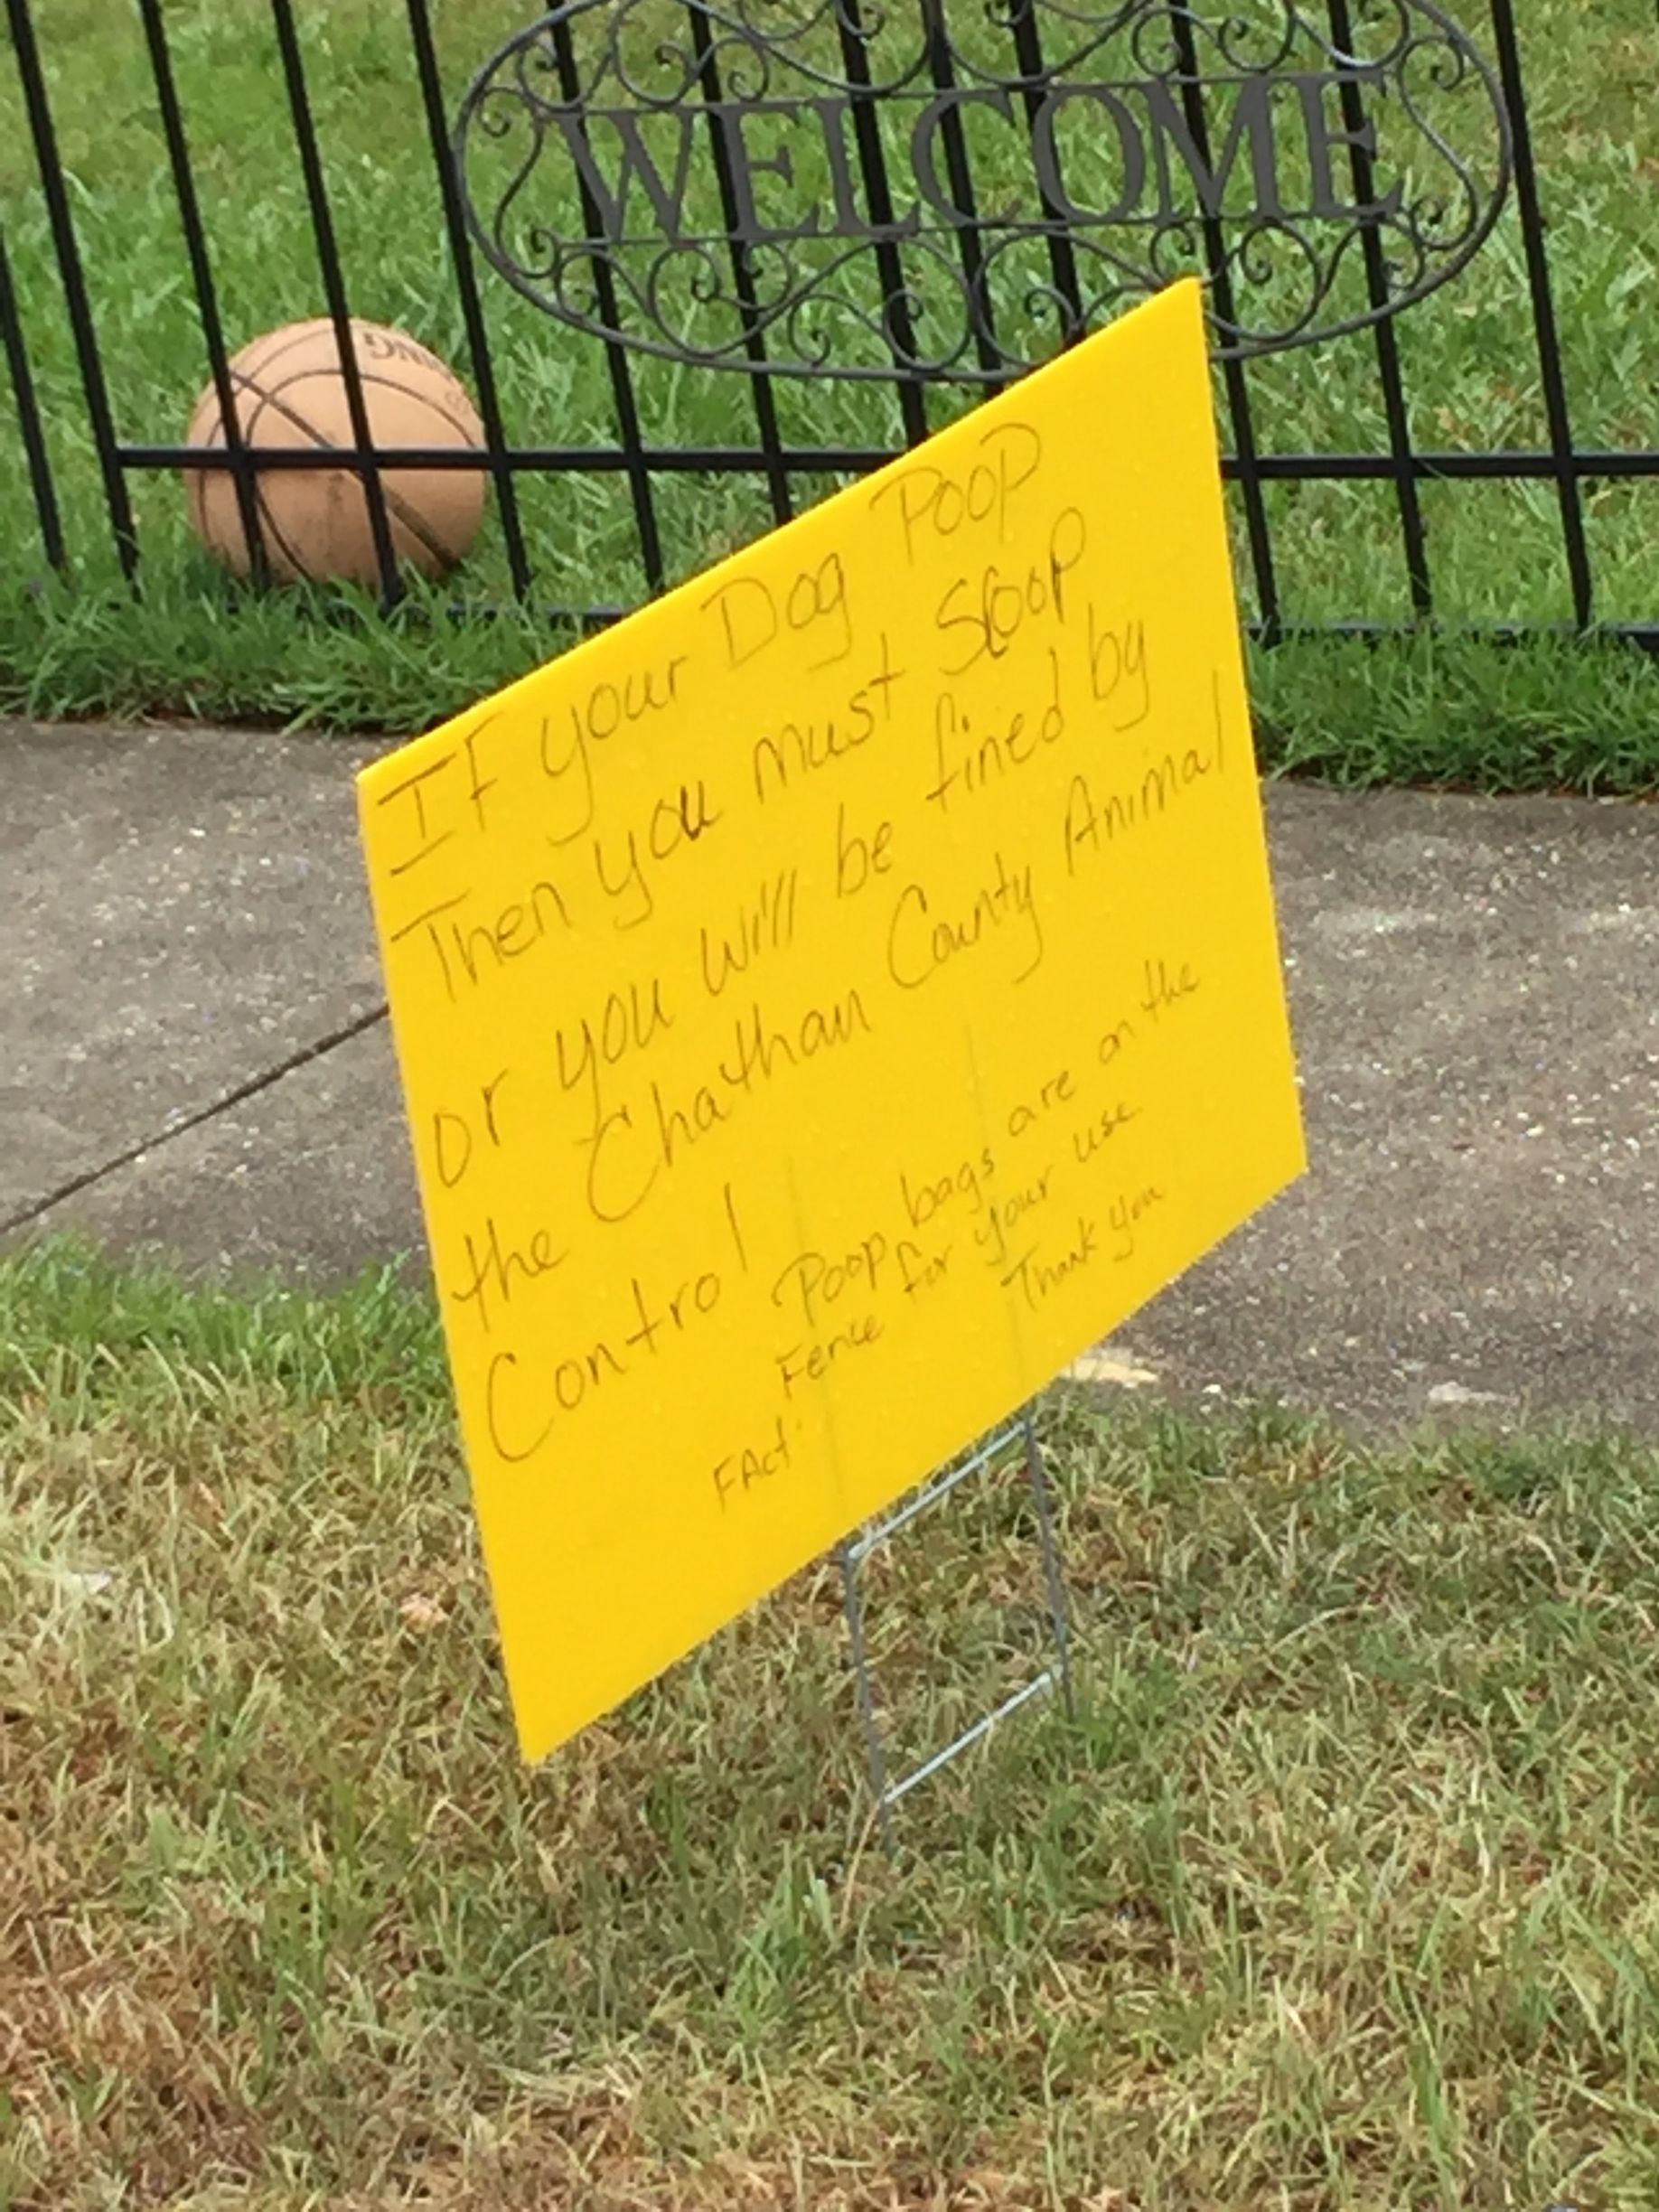 WELCOME
If your Dog Poop
Then you must Scoop
or you will be fined by
the Chathan County Animal
Control
Poop bags are on the
Fence for your use
Thank you
FAct